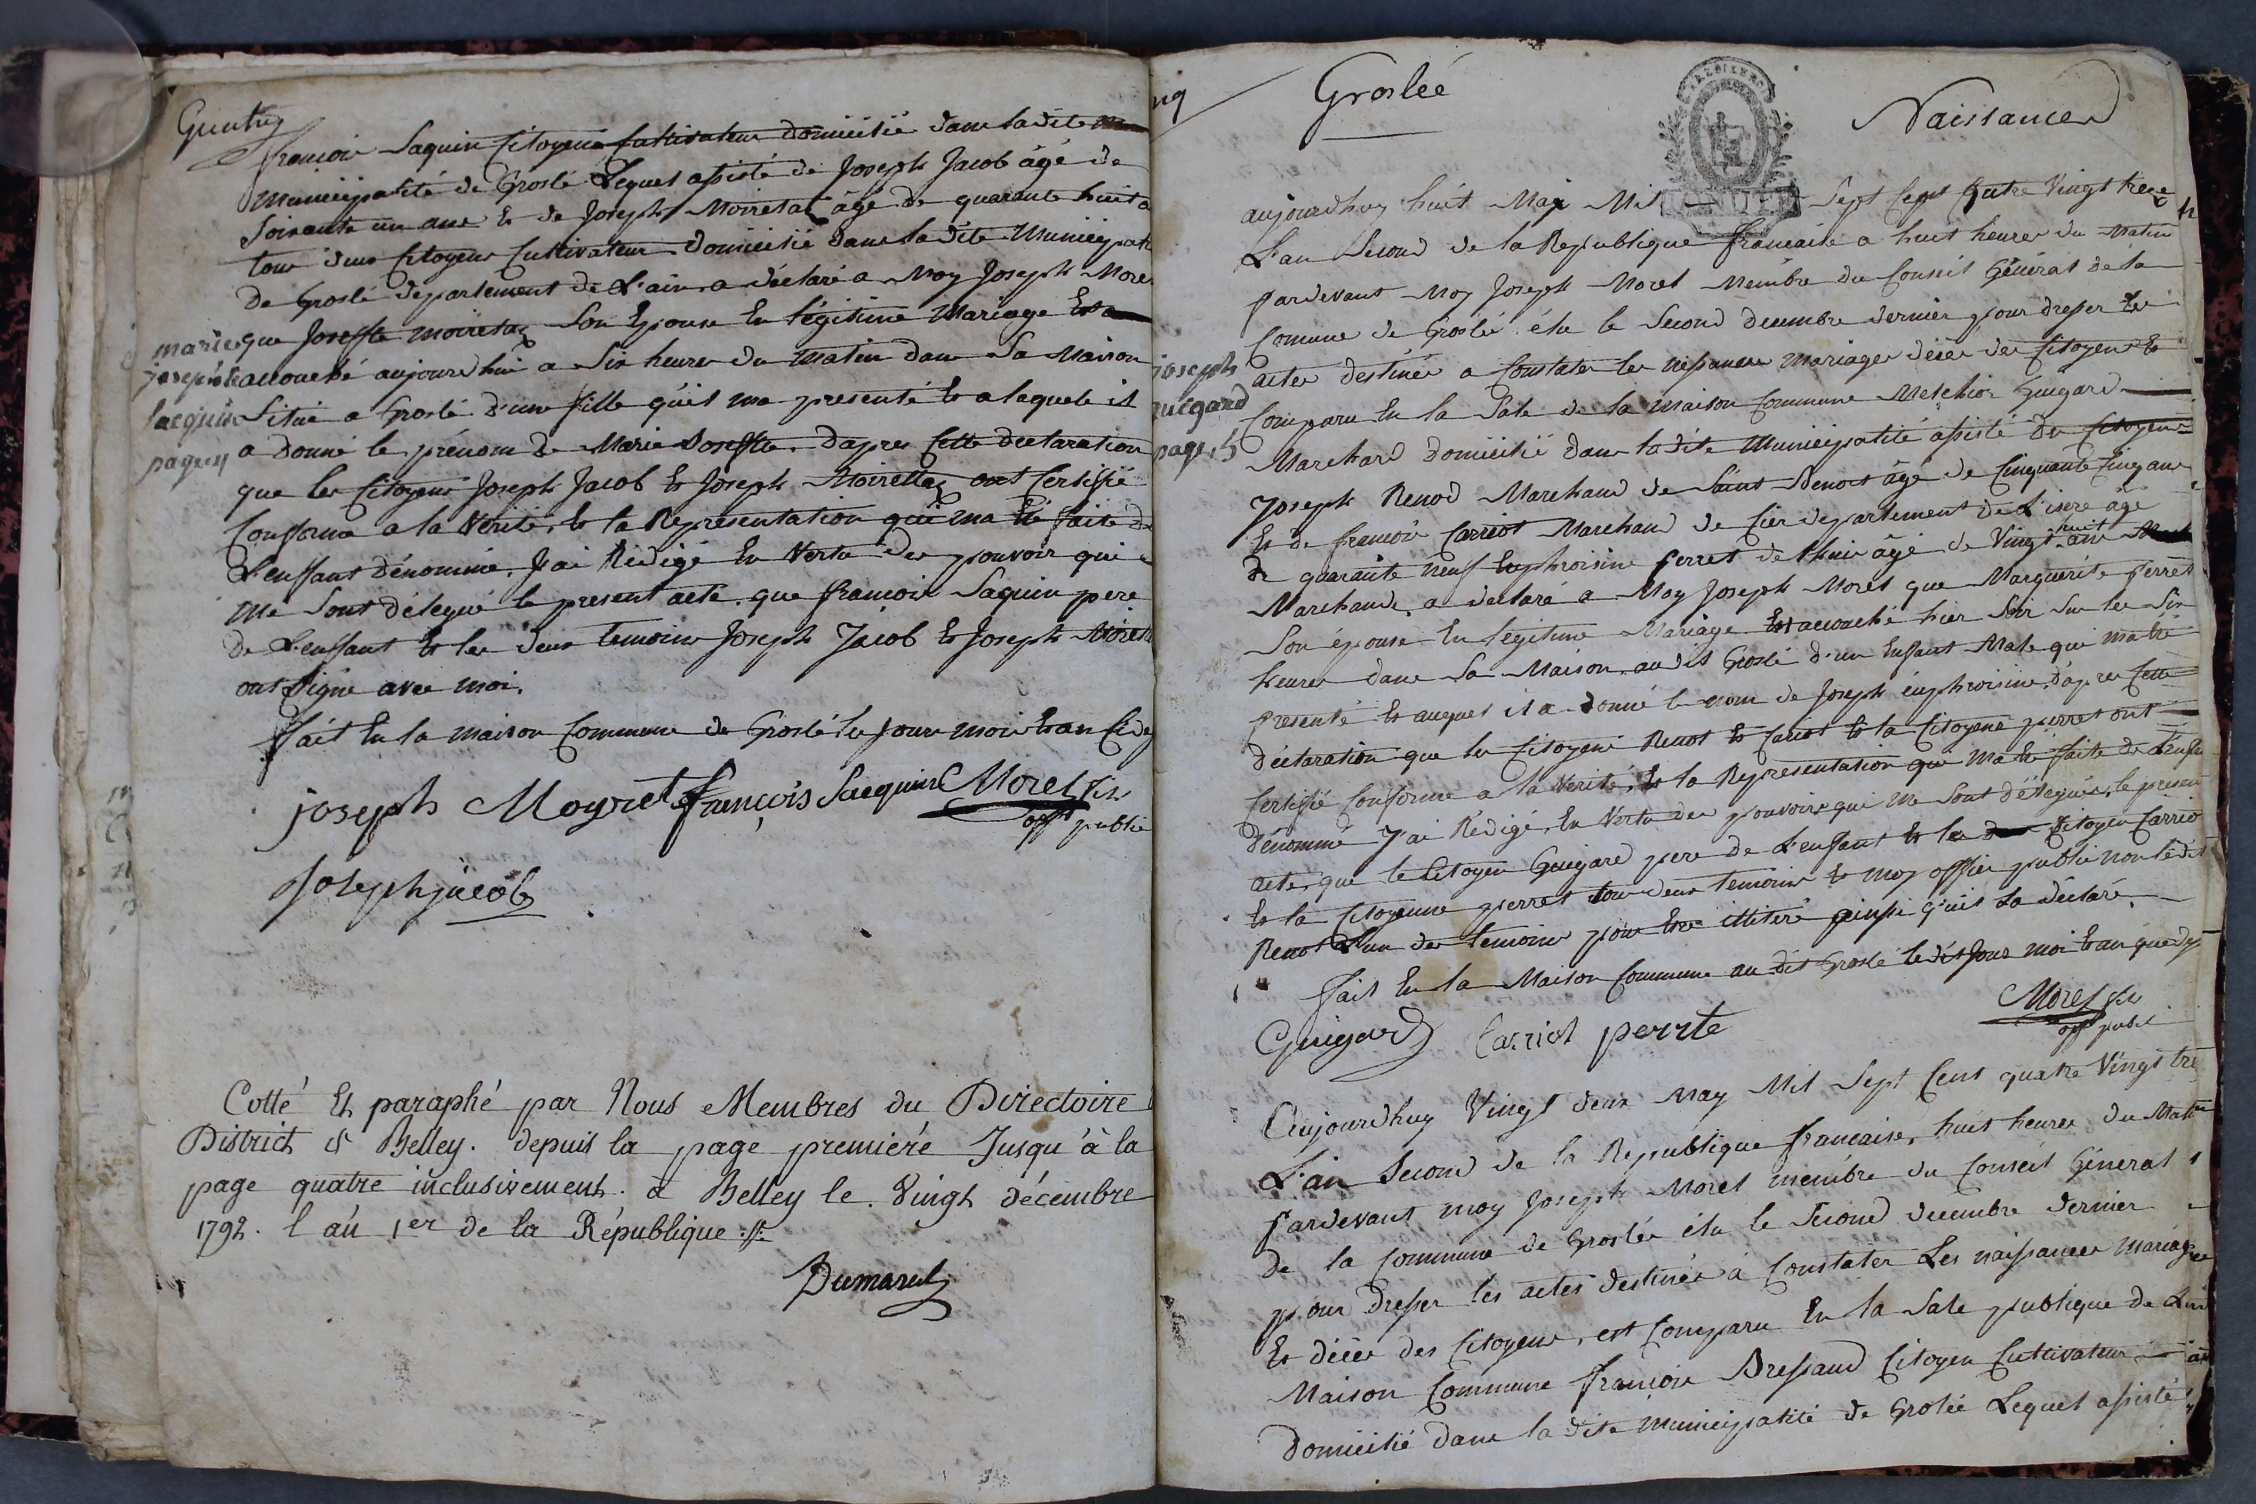 françois Saquin Citoyens Cultivateur domicilié dans la dite
Municipalité de Groslé Lequel assisté de Joseph Jacob âgé de
Soixante un ans et de Joseph Moiretaz âgé de quarante huit a
tous deux Citoyens Cultivateurs domicilié dans la dite Municipali
de Groslé departement de L'ain a déclaré a Moy Joseph Morel
que Joseffte moiretaz Son Epouse En légitime Mariage Est
accouché aujourdhui a Six heures du matin dans Sa Maison
Située a Groslé d'une fille qu'il ma presenté et a laquele il
a donné le prénom de Marie Joseffte. dapres Cette declaration
que les Citoyens Joseph Jacob et Joseph Moirettaz ont Certifié
Conforme a la Verité, et la Representation qui ma Eté faite de
L'enffant dénommé, J'ai Rédigé En Vertu des pouvoirs qui
me Sont délegué le present acte. que françois Saquin pere
de L'enffant et les deux temoins Joseph Jacob et Joseph Moiret
ont Signé avec moi.
fait En la maison Commune de Groslé les jour mois et an
marie
josephte
Jacquin
page
joseph Moyret françois Jacquin Morel fils
offr public
Joseph jacob
Cotté Et paraphé par Nous Membres du Directoire
District de Belley. depuis la page premiere Jusqu'à la
page quatre inclusivement. à Belley le Vingt décembre
1792. l'an 1er de la République
Dumarest
Groslée
Naissances
aujourdhuy huit May Mil Sept Cent Quatre Vingt treze
L'an Second de la Republique francaise a huit heures du Matin
pardevant Moy Joseph Morel Membre du Conseil Général de la
Comune de Groslée élu le Second decembre dernier pour dresser les
actes destinés a Constater les nessances mariages décès des Citoyens Est
Comparu En la Sale de la Maison Commune Melchior Guigard
Marchard domicilié dans la dite Municipalité assisté des Citoyens
Joseph Renod Marchand de Saint Benoit âgé de Cinquante Cinq ans
Et de francois Carriot Marchand de departement de L'isere âgé
de quarante neuf Euphroisine perret de âgé de Vingt huit ans
Marchande, a declaré a Moy Joseph Morel que Marguerite perret
Son épouse En légitime Mariage Est accouché hier Soir Sur les Six
heures dans Sa Maison, au dit Groslé d'un Enfant Male qui ma été
presenté Et auquel il a donné le nom de Joseph éuphroisine, dapres Cette
déclaration que les Citoyens Renot et Cariot et la Citoyene perret ont
Certifié Conforme a la Verité, Et la Representation qui Ma été faite de L'enfa
dénommé J'ai Rédigé, En Vertu des pouvoirs qui me Sont délegués, le present
acte, que le Citoyen Guigard pere de L'enffant Et le Citoyen Carrio
Et la Citoyenne perret tous deux temoins Et moy officier public non ledit
Renot L'un des temoins pour Etre illiteré ainssi qu'il La déclaré.
fait En la Maison Commune au dit Groslé le dit Jour moi et an que
joseph
guigard
page
Guigard Carriot perrte
Morel fils
offr public
Aujourdhuy Vingt deux May Mil Sept Cent quatre Vingt tre
L'an Second de la République francaise, huit heures du Matin
pardevant moy Joseph Morel membre du Conseil Géneral
de la Commune de Groslée élu le Second decembre dernier
pour dresser les actes destinés à Constater Les naissances mariages
Et décès des Citoyens, est Comparu En la Sale publique de
Maison Commune francois Bressand Citoyen Cultivateur
domicilié dans la dite municipalité de Grolée Lequel assisté